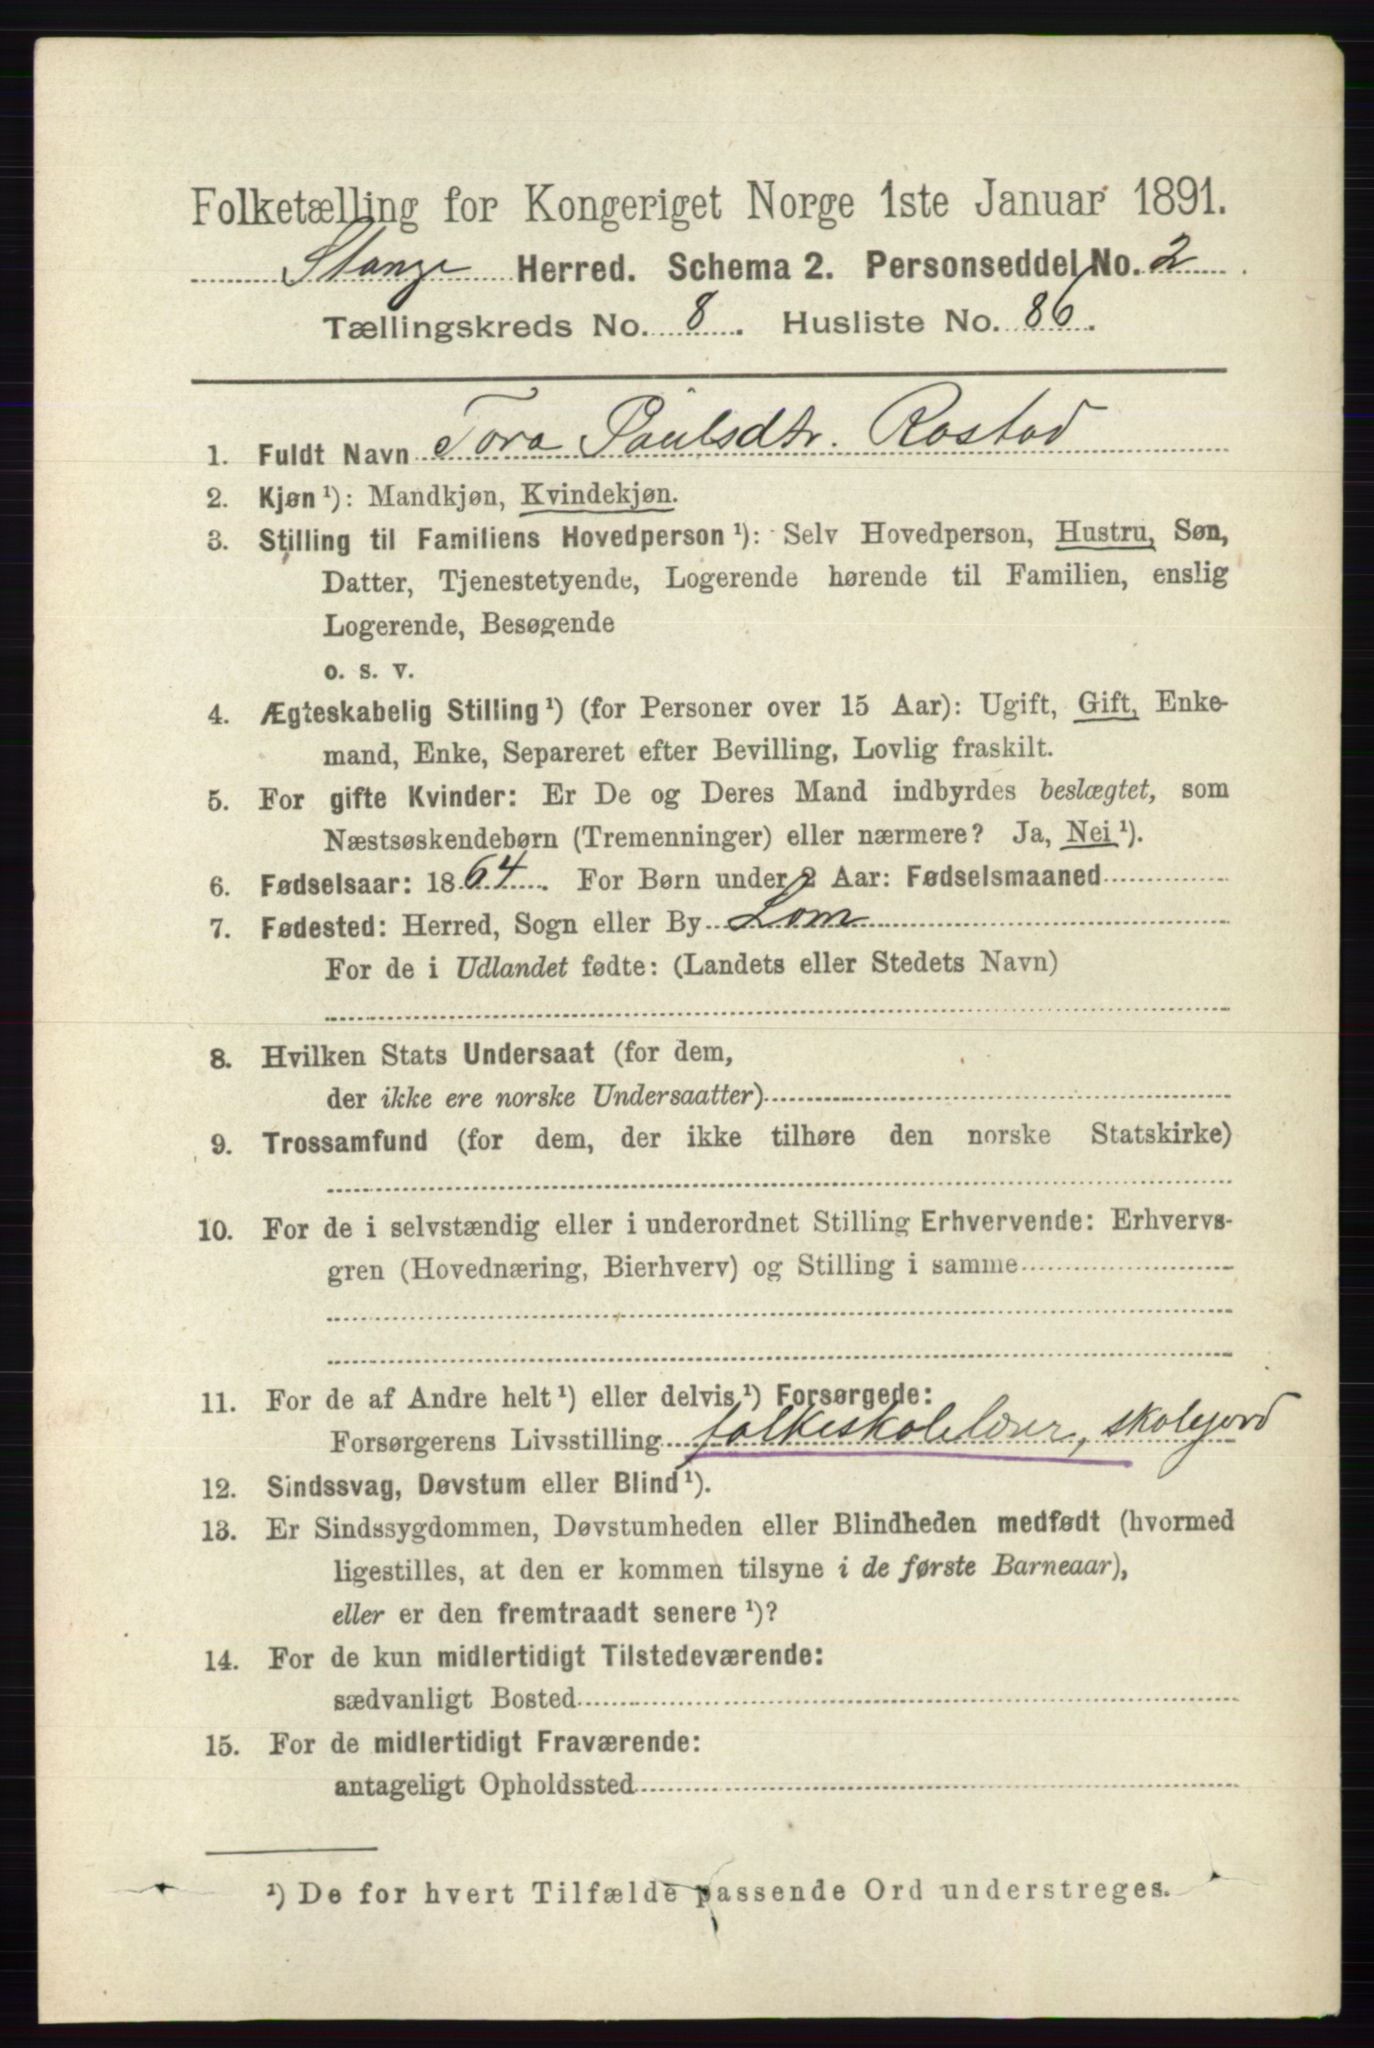 Folketælling for Kongeriget Norge 1ste Januar 1891.
Stange Herred. Schema 2. Personseddel No. 2
Tællingskreds No. 8. Husliste No. 86.
1. Fuldt Navn Tora Paulsdtr. Rostad
2. Kjøn ¹): Mandkjøn, Kvindekjøn.
3. Stilling til Familiens Hovedperson ¹): Selv Hovedperson, Hustru, Søn,
Datter, Tjenestetyende, Logerende hørende til Familien, enslig
Logerende, Besøgende
o. s. v.
4. Ægteskabelig Stilling ¹) (for Personer over 15 Aar): Ugift, Gift, Enke-
mand, Enke, Separeret efter Bevilling, Lovlig fraskilt.
5. For gifte Kvinder: Er De og Deres Mand indbyrdes beslægtet, som
Næstsøskendebørn (Tremenninger) eller nærmere? Ja, Nei ¹).
6. Fødselsaar: 1864. For Børn under 2 Aar: Fødselsmaaned
7. Fødested: Herred, Sogn eller By Lom
For de i Udlandet fødte: (Landets eller Stedets Navn)
8. Hvilken Stats Undersaat (for dem,
der ikke ere norske Undersaatter)
9. Trossamfund (for dem, der ikke tilhøre den norske Statskirke)
10. For de i selvstændig eller i underordnet Stilling Erhvervende: Erhvervs-
gren (Hovednæring, Bierhverv) og Stilling i samme
11. For de af Andre helt ¹) eller delvis ¹) Forsørgede:
Forsørgerens Livsstilling folkeskolelærer, skolejord
12. Sindssvag, Døvstum eller Blind ¹).
13. Er Sindssygdommen, Døvstumheden eller Blindheden medfødt (hvormed
ligestilles, at den er kommen tilsyne i de første Barneaar),
eller er den fremtraadt senere ¹)?
14. For de kun midlertidigt Tilstedeværende:
sædvanligt Bosted
15. For de midlertidigt Fraværende:
antageligt Opholdssted
¹) De for hvert Tilfælde passende Ord understreges.